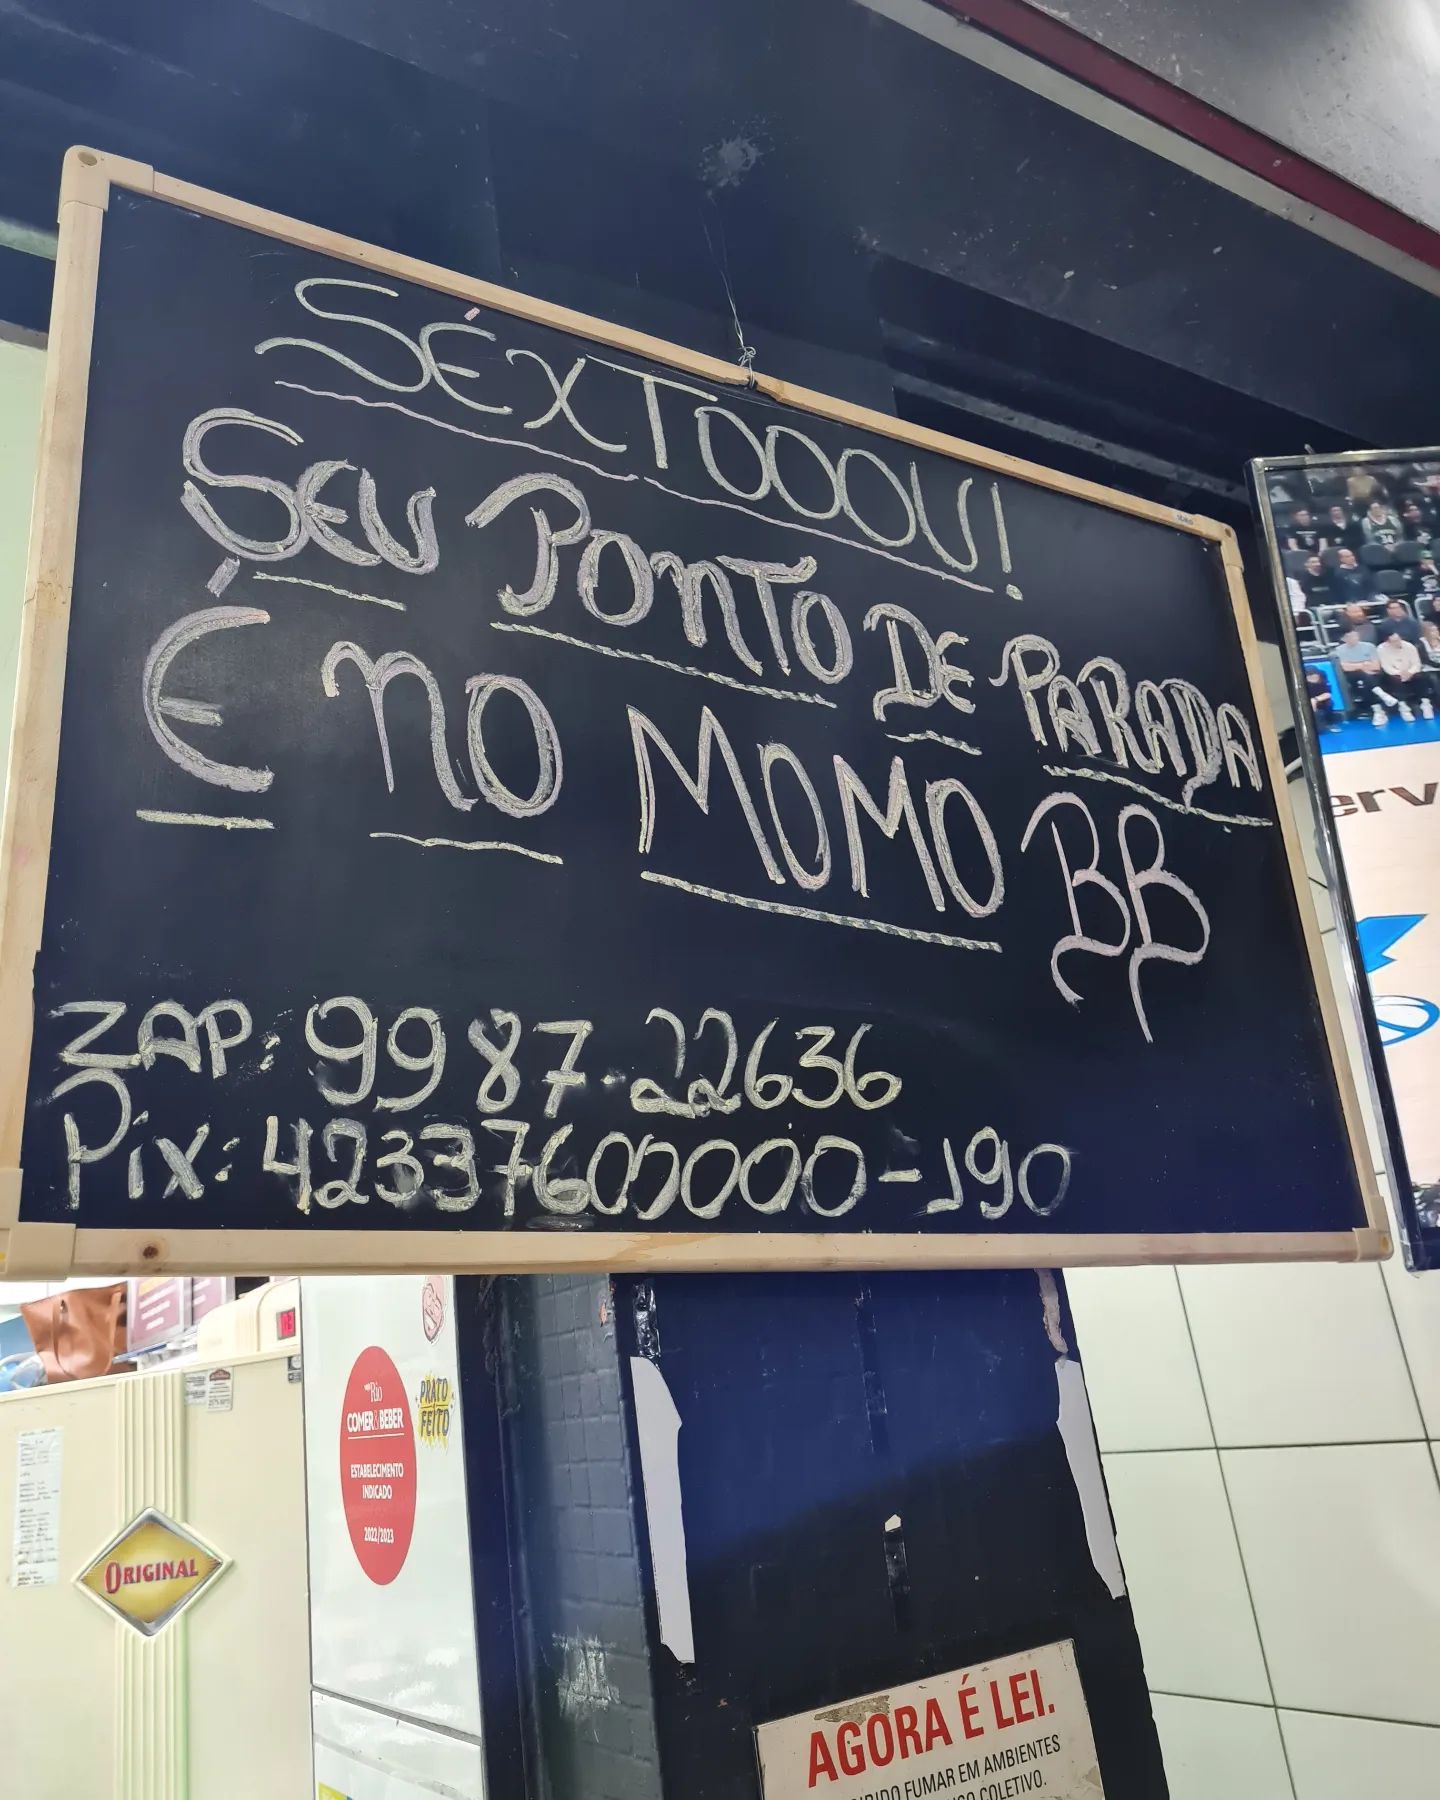 SÉXTOOOU!
SEU PONTO DE PARADA
É NO MOMO BB
ZAP: 9987-22636
Pix: 42337600000-190
erv
Rio
COMER & BEBER
ESTABELECIMENTO
INDICADO
2022/2023
PRATO
FEITO
ORIGINAL
AGORA É LEI.
IBIDO FUMAR EM AMBIENTES
USO COLETIVO.